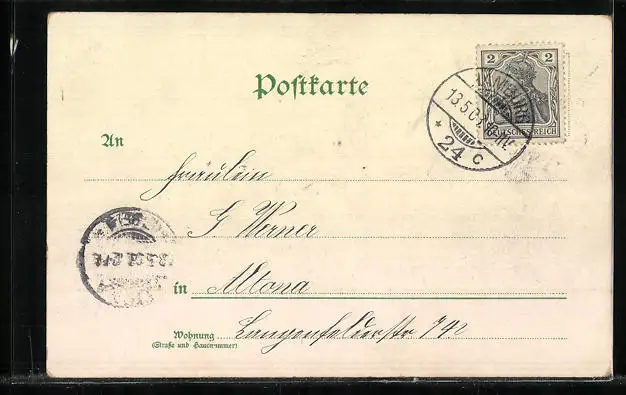 Postkarte
2 2
DEUTSCHES REICH
13.5.0
* 24 c
An
Fräulein
G Werner
in Altona
Wohnung Langenfelderstr 742
(Straße und Hausnummer)